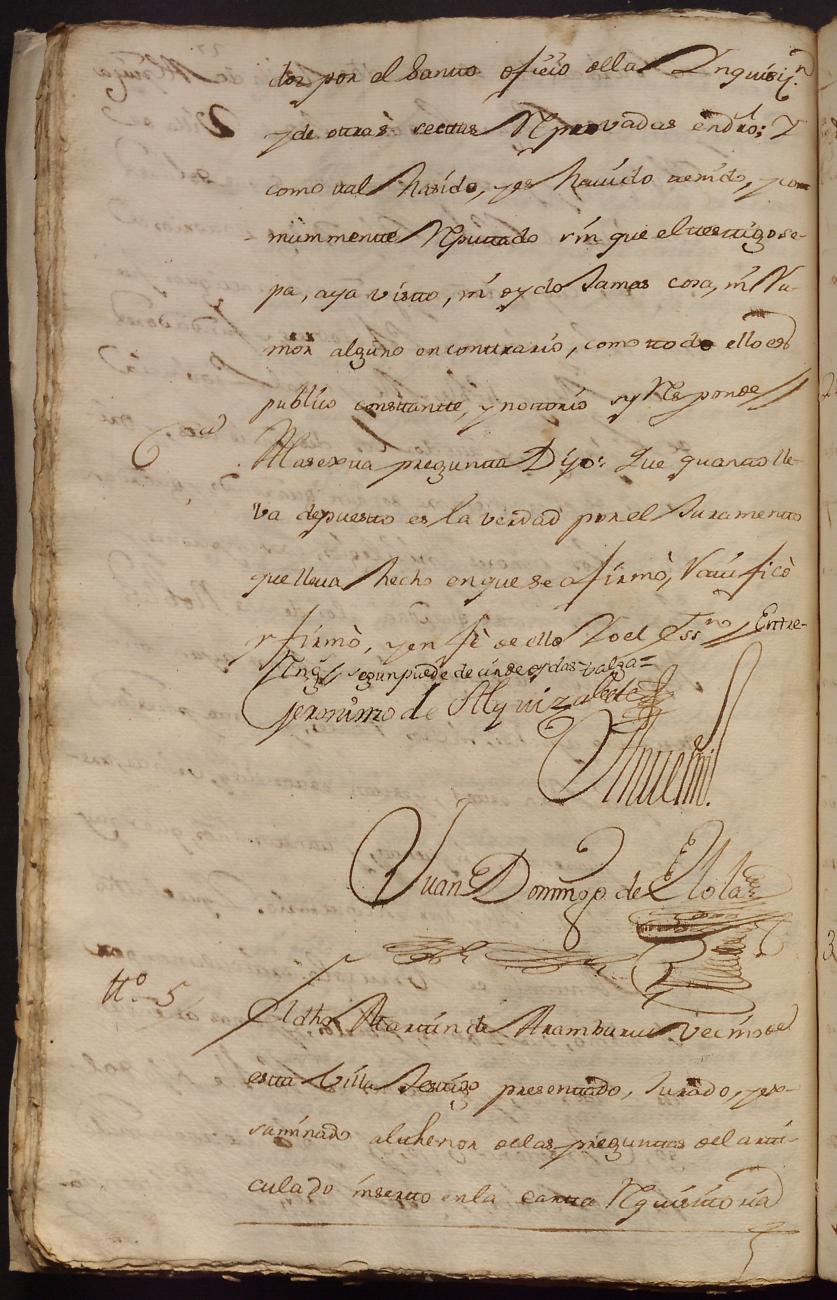 dos por el Santto oficio dela Ynquisiz.n
y de otras secttas Reprovadas en dro; Y
como tal ha sido, y es havido tenido, y co
munmentte Reputtado sin que el testtigo se-
pa, aya vistto, ni oydo Jamas cosa, ni Ru-
mor alguno en conttrario, como ttodo ello es
publico consttantte, y nottorio y Responde //
6 ... A la sextta pregunta Dijo: Que quanto lle-
va depuestto es la verdad por el Juramentto
que lleva hecho en que se afirmò, Rattificò
y firmò, y en fè de ello Yo el Ess.no // Enttre-
Rng.s // segun puede de cinde oydas = valga =
Geronimo de Alquizalete
Antemi.
Juan Domingo de Elola
tt.º 5
El dho Martin de Aramburu Vecino de
estta Villa Testtigo presenttado, Jurado, y ex-
saminado al thenor de las preguntas del artti-
culado insertto en la cartta Requisittoria